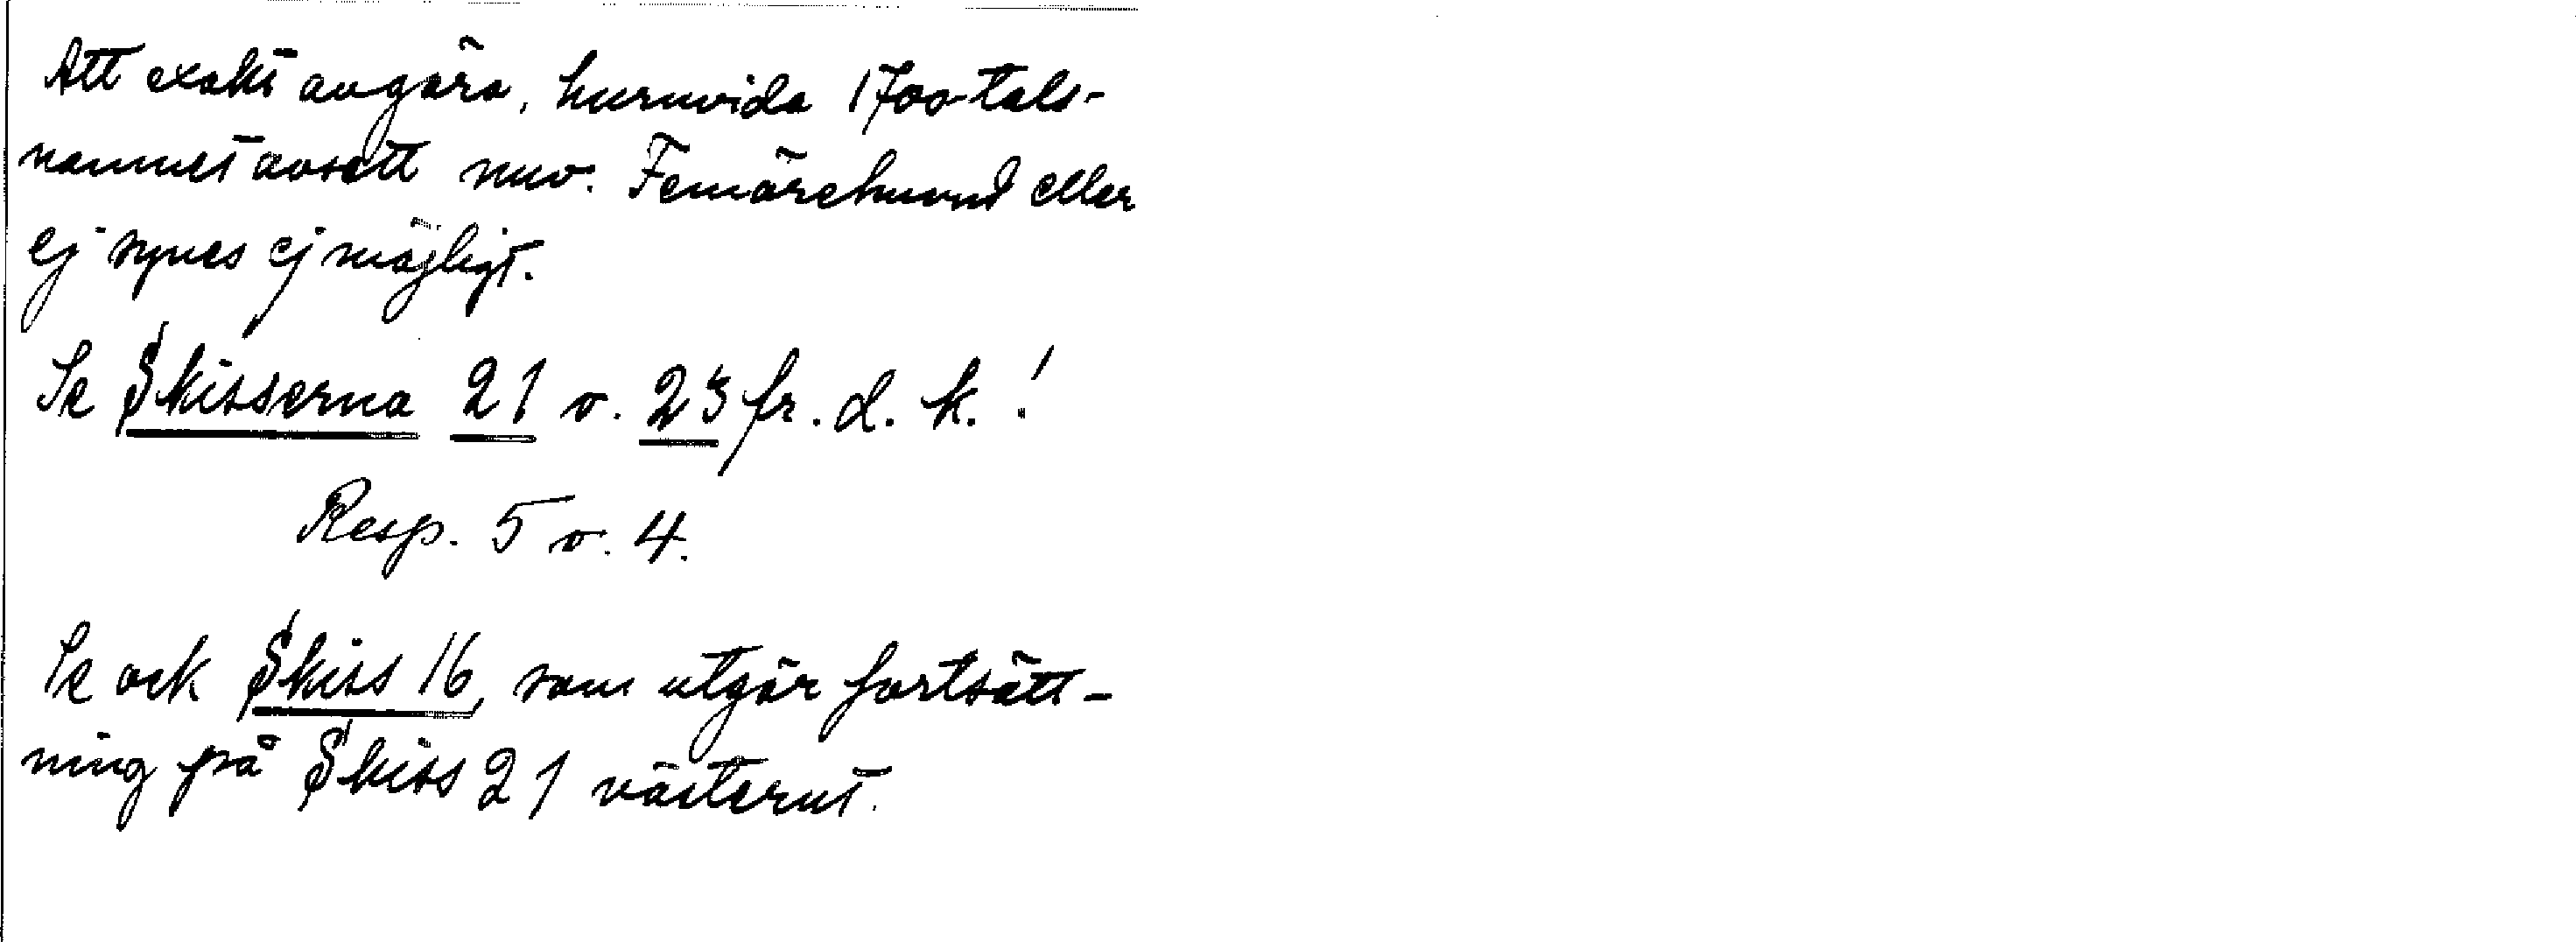 Att exakt avgöra, huruvida 1700-tals-
namnet avsett nuv. Femörehuvud eller
ej synes ej möjligt.
Se Skisserna 21 o. 23 fr. d. k.!
Resp. 5 o. 4.
Se ock Skiss 16, som utgör fortsätt-
ning på Skiss 21 västerut.